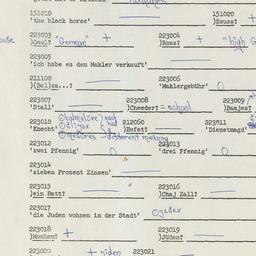 151010 151020
'the black horse' )Ssuss? +
223003 223004
)Gaul? "German" + )Ross? + "high G
223005
'ich habe es dem Makler verkauft'
211100 223006
)(Bal)za...? 'Maklergebühr' O
223007 223008 223009
'Stall' )Cheeder? = school )Baajes?
223010 212060 223011
'Knecht' )Befet? 'Dienstmagd'
different meaning
223012 223013
'zwei Pfennig' O 'drei Pfennig' O
223014
'sieben Prozent Zinsen'
223015 223016
)ein Ratt? )Chaj Zall?
223017
'die Juden wohnen in der Stadt'
223018 223019
)Monkem? + )Jüden?
223020 223021